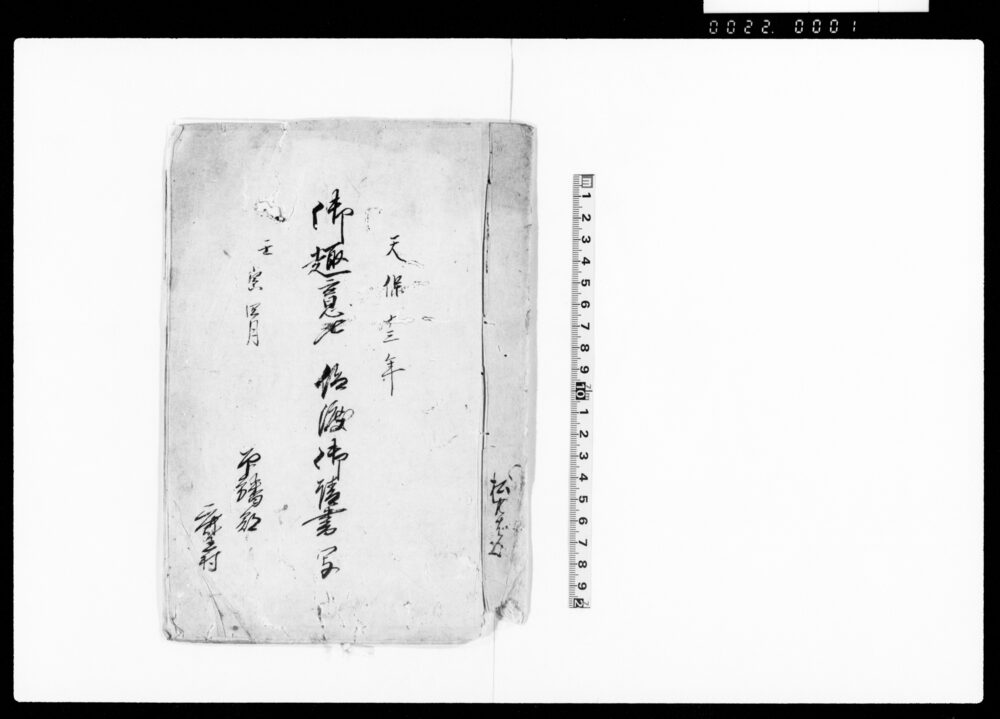 0022. 0001
天保十三年
御趣意被仰渡御請書写
壬寅四月
印旛郡
1 2 3 4 5 6 7 8 9 10 1 2 3 4 5 6 7 8 9 2